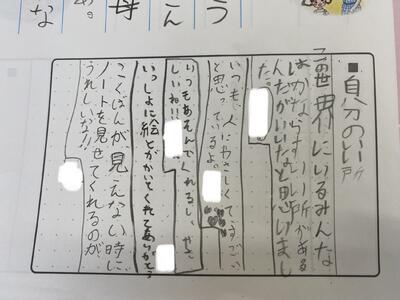 う
こん
母
な
■自分のいい所
この世界にいるみんな
はかならずいい所がある
んだがいいなと思いまし
た。
いつも、人にやさしくていてすごい
と思っているよ。
いつもあそんでくれるし、やさ
しいね!!!
いっしょに絵とかかいてくれてありがとう
こくばんが、見えない時に
ノートを見せてくれるのが
うれしいかな!!